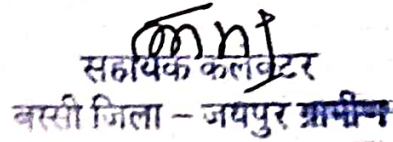 सहायक कलक्टर
बस्सी जिला – जयपुर ग्रामीण